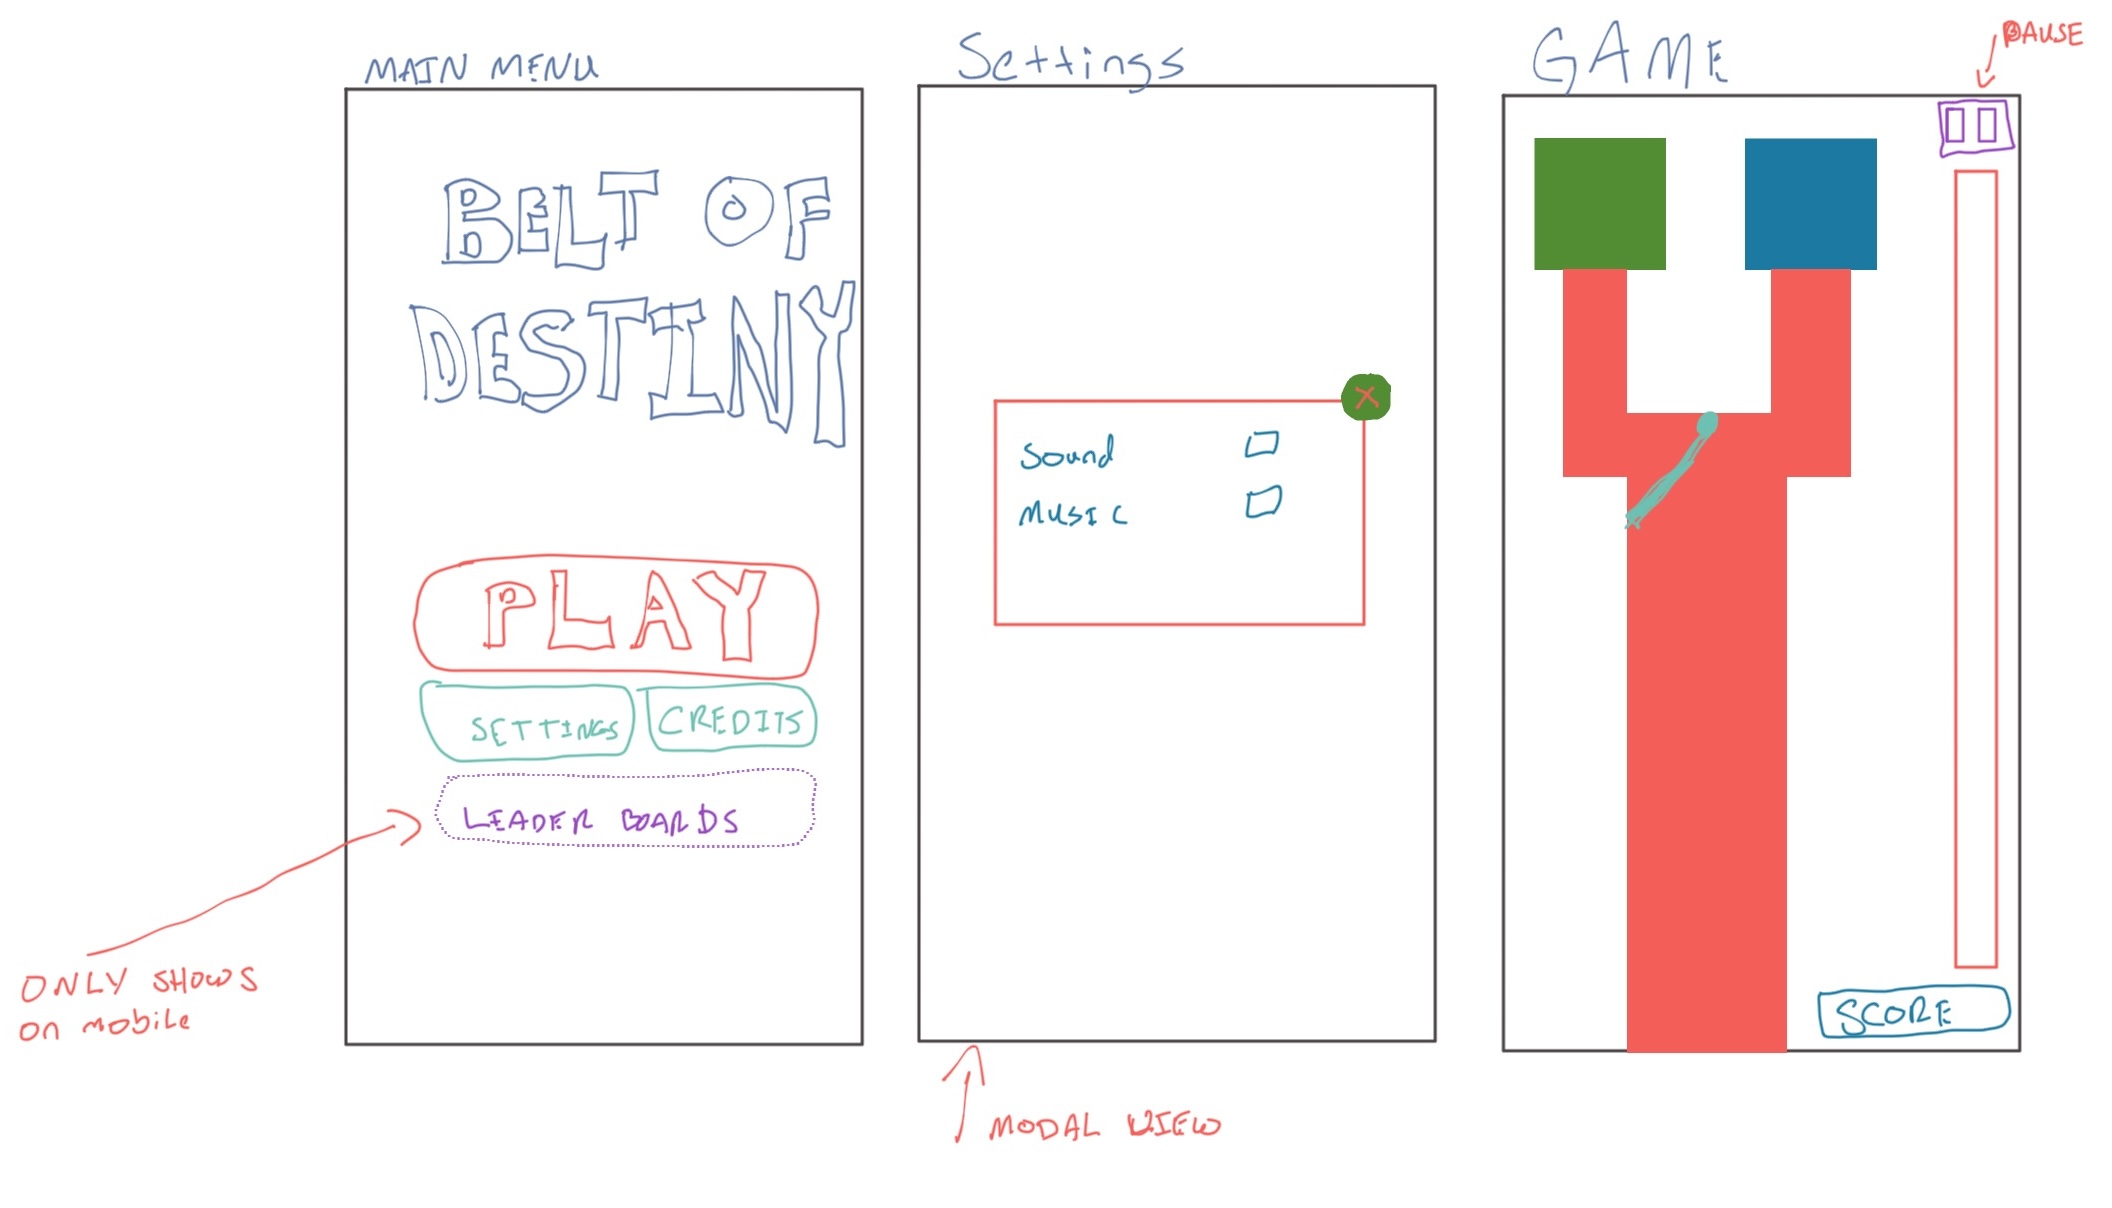 MAIN MENU
BELT OF
DESTINY
PLAY
SETTINGS
CREDITS
LEADER BOARDS
ONLY SHOWS
on mobile
Settings
X
Sound
MUSIC
MODAL VIEW
GAME
PAUSE
SCORE